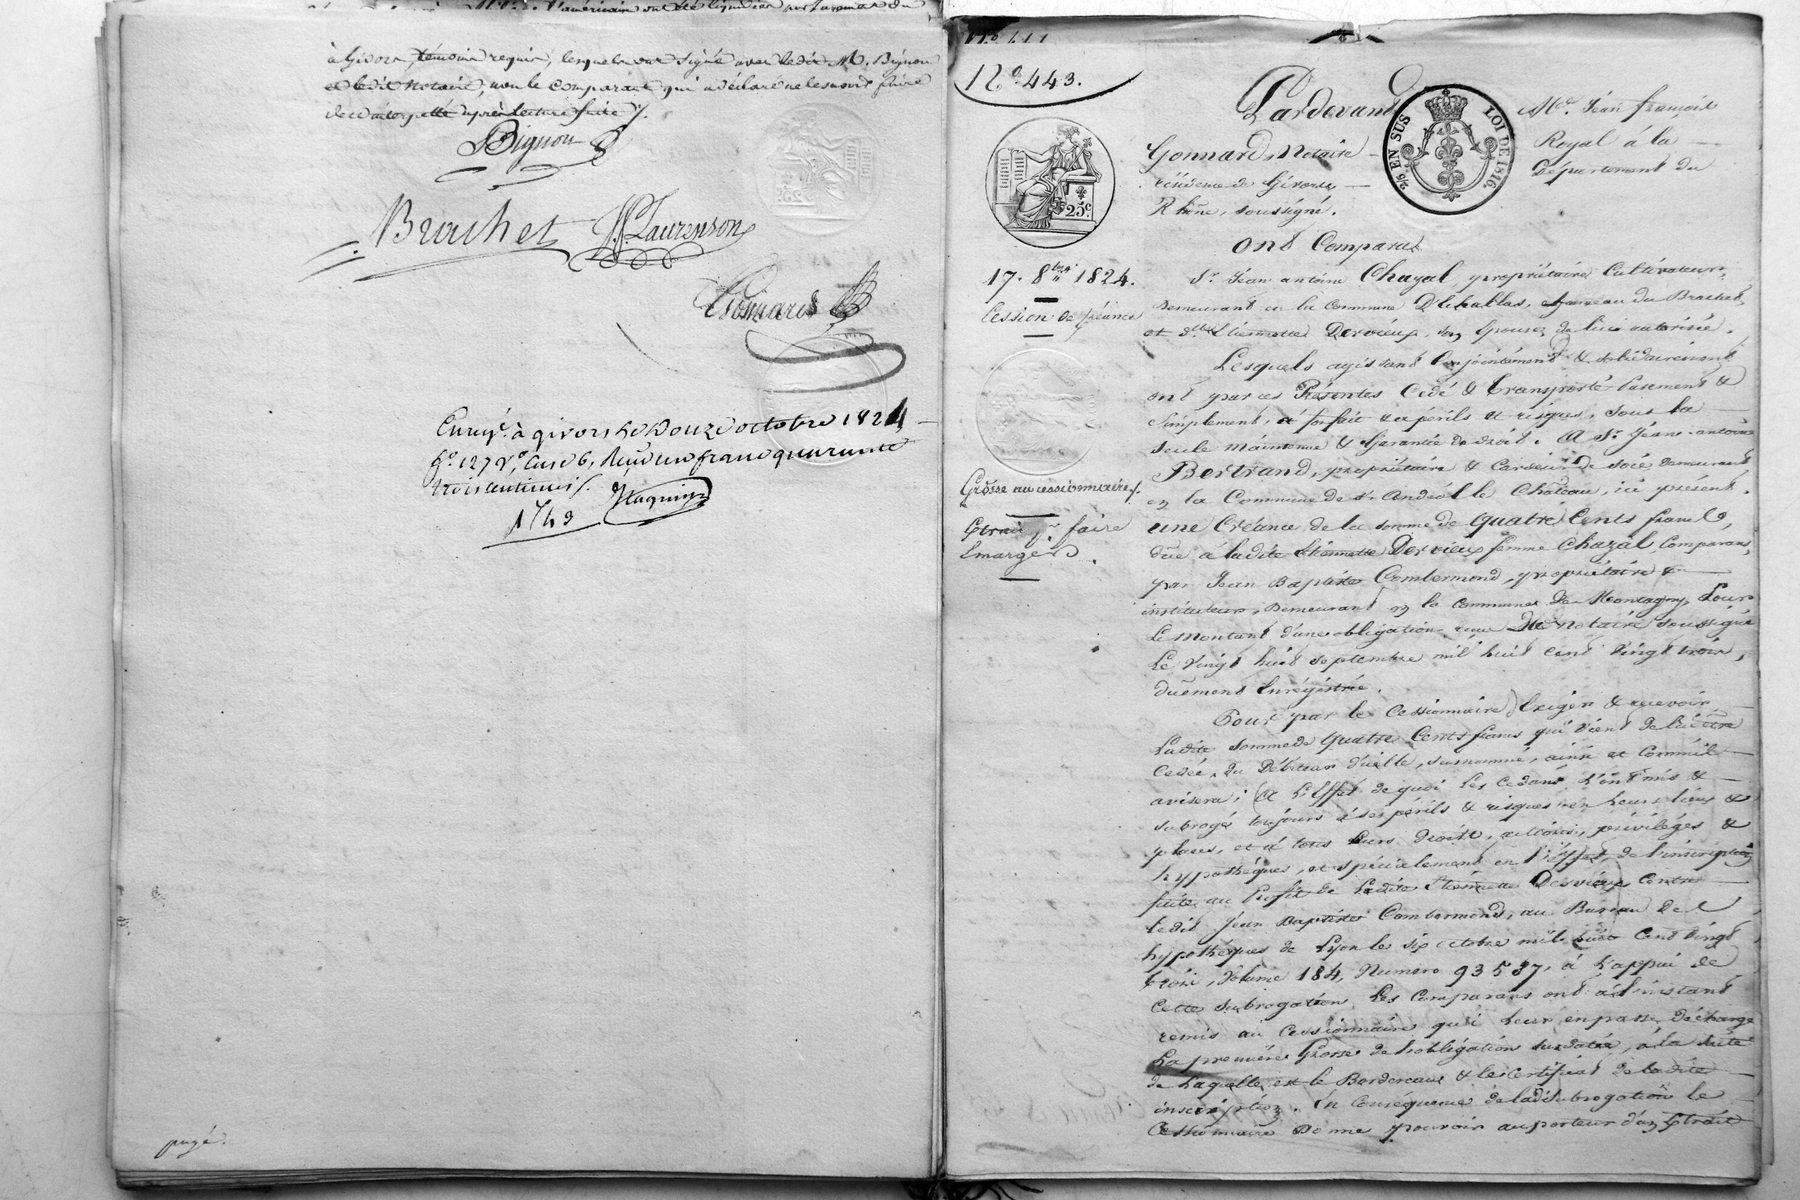 à Givors, témoins requis, lesquels ont signé avec ledit M. Bignon
et ledit Notaire, non le comparant qui a déclaré ne le savoir faire
de ce interpellé après lecture faite.
Bignon
Brachet J. Laurenson
Gonnard
Enreg. à givors le Douze octobre 1824
fo. 127 Vo. Case 6, Reçu un franc quarante
trois centimes.
1 43
payé.
No. 443.
Pardevant Me. Jean françois
Gonnard, Notaire Royal à la
résidence de Givors, Département du
Rhône, soussigné.
2/5 EN SUS
LOI DE 1816.
25c.
17. 8bre 1824.
Cession de créance
Grosse au cessionnaire.
Extrait pr. faire
Emarger
ont Comparu
Sr. Jean antoine Chazal, propriétaire Cultivateur,
demeurant en la Commune D'Echallas, hameau du Brachet,
et de. Etiennette Dervieux, son Epouse, de lui autorisée.
Lesquels agissant Conjointement & solidairement
ont par ces Présentes Cédé & transporté purement &
simplement, à forfait aux périls & risques, sous la
seule maintenue & Garantie de droit. A Sr. Jean antoine
Bertrand, propriétaire & Cardeur de soie demeurant
en la Commune de St. Andéol le Château, ici présent.
une Créance de la somme de quatre Cents francs,
due à ladite Etiennette Dervieux femme Chazal, Comparans,
par Jean Baptiste Combermond, propriétaire &
instituteur, demeurant en la commune de Montagny, Pour
le montant d'une obligation reçue Me. Notaire soussigné
le vingt huit septembre mil huit cent vingt trois,
duement Enregistrée.
Pour par le Cessionnaire Exiger & recevoir
ladite somme de quatre Cents francs qui vient de lui être
Cédée, du Débiteur d'icelle, surnommé, ainsi et comme il
avisera; A l'Effet de quoi les cedans l'ont mis &
subrogé toujours à ses périls & risques en leurs lieu &
place, et à tous leurs droits, actions, privilèges &
hypothèques, et spécialement en l'Effet de l'inscription
faite au Profit de ladite Etiennette Dervieux Contre
ledit Jean Baptiste Combermond, au Bureau des
hypothèques de Lyon le six octobre mil huit Cent vingt
trois, Volume 184, Numero 93537, à l'appui de
Cette subrogation, les Comparans ont à l'instant
remis au Cessionnaire qui leur en passe décharge
la première Grosse de l'obligation susdatée, à la suite
de laquelle est le Bordereau & le Certificat de ladite
inscription. En Conséquence de ladite subrogation le
Cessionnaire donne pouvoir au porteur d'un Extrait